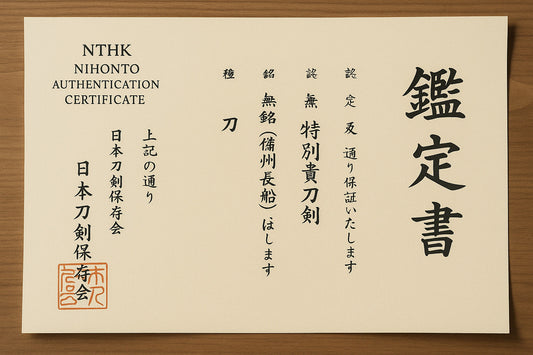 鑑定書
認定及通り保証いたします
認無特別貴刀剣
銘無銘(備州長船)はします
種刀
上記の通り
日本刀剣保存会
日本刀剣保存会
NTHK
NIHONTO
AUTHENTICATION
CERTIFICATE